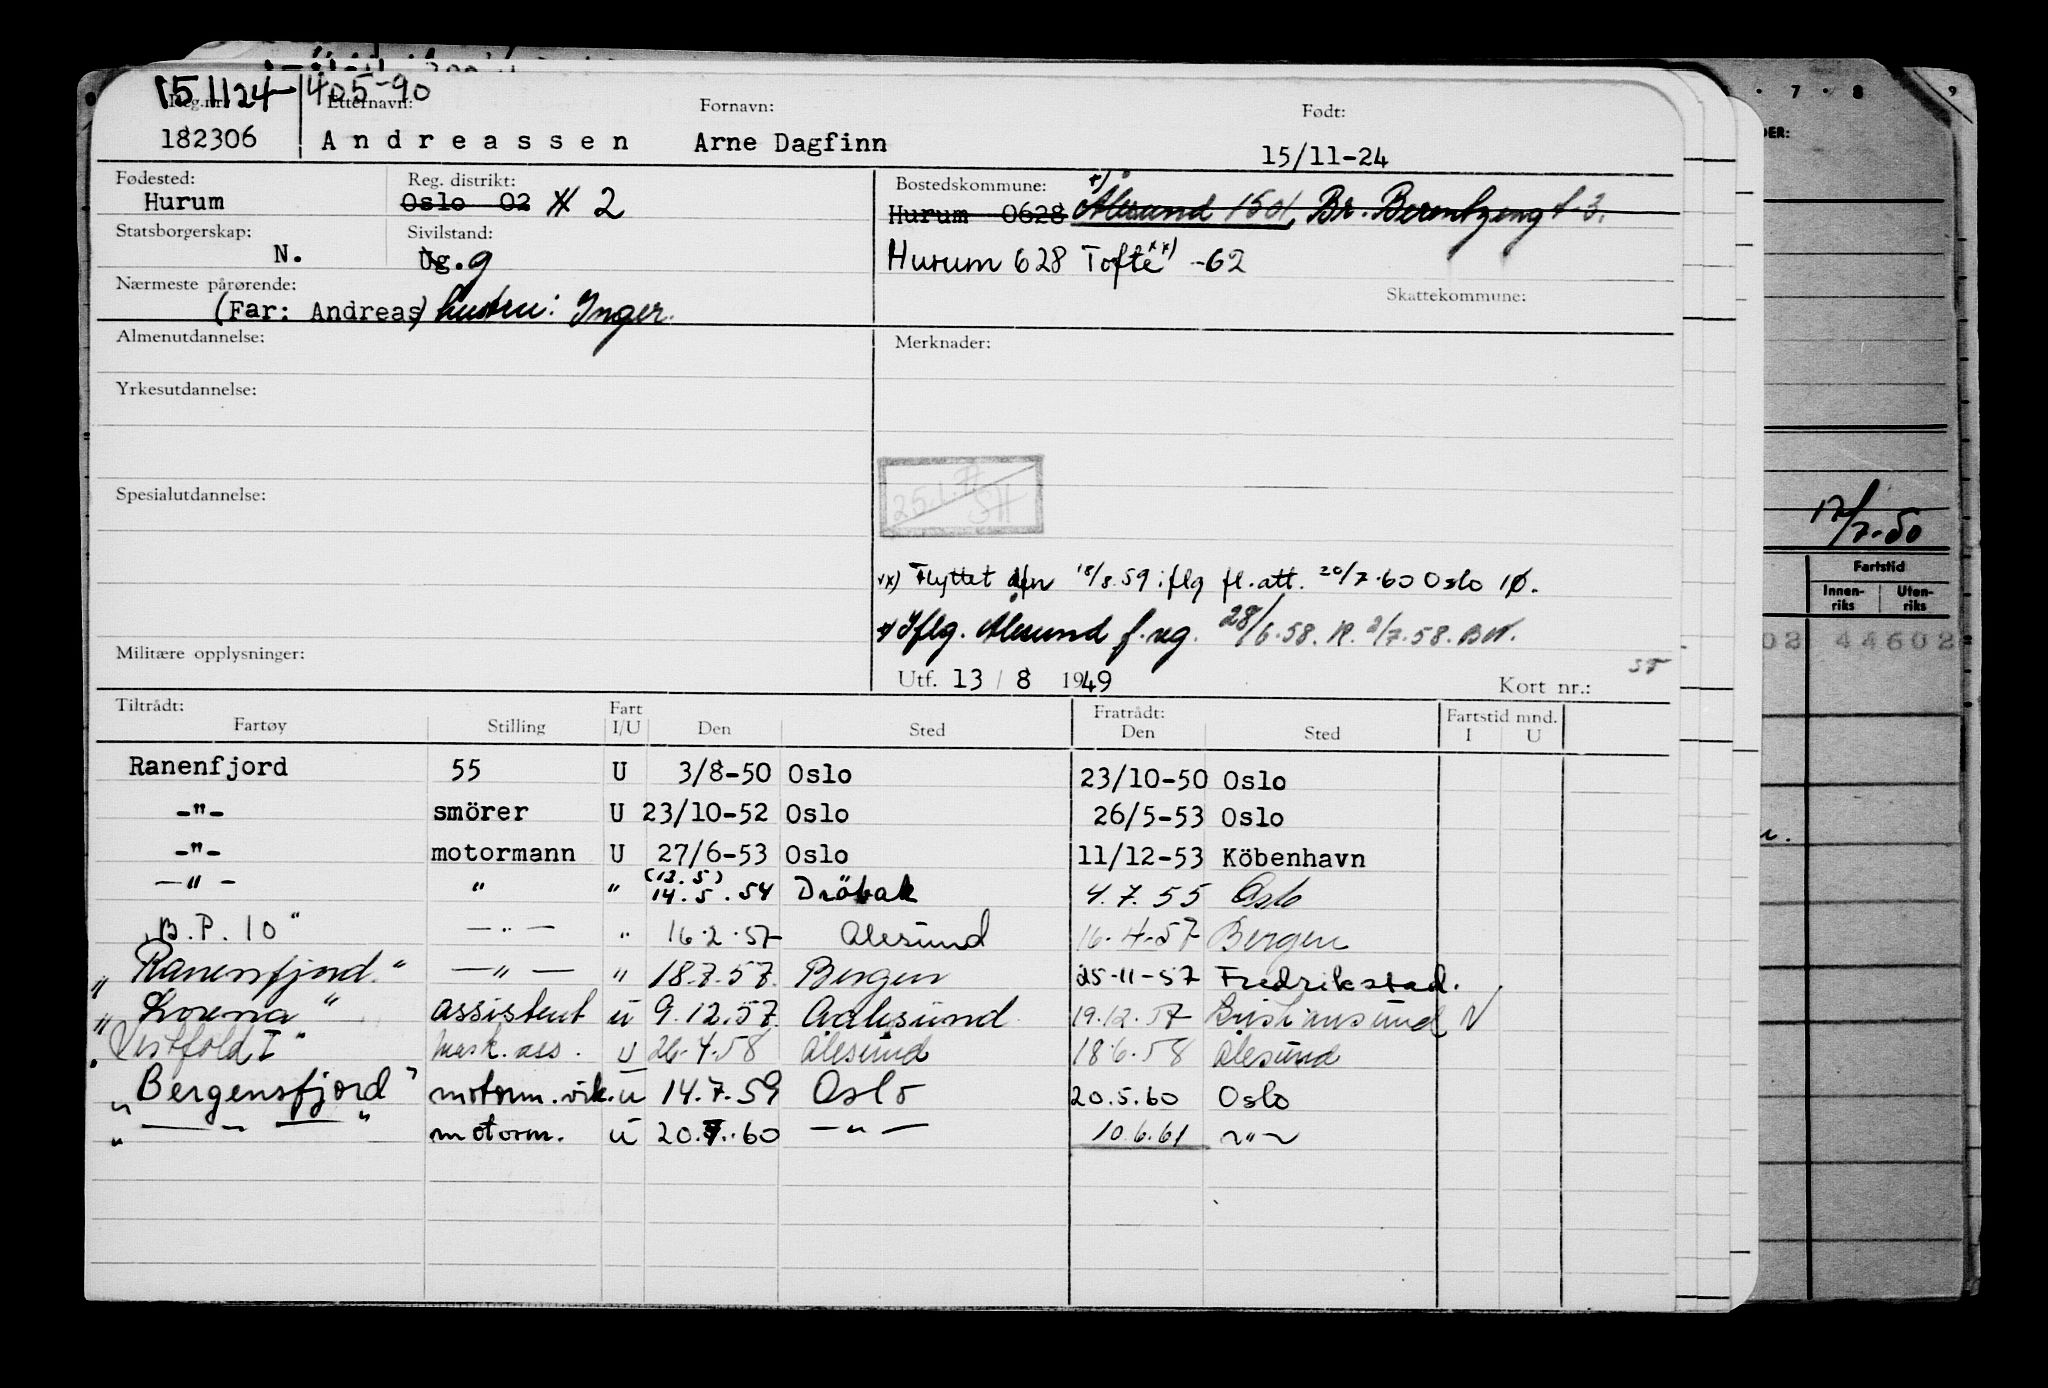 151124 405-90
Reg.nr. Etternavn: Fornavn: Født:
182306 Andreassen Arne Dagfinn 15/11-24
Fødested: Reg. distrikt: Bostedskommune: +)
Hurum Oslo 02 2 Hurum 0628 Ålesund 1501, Br. Berentzengt. 3.
Statsborgerskap: Sivilstand:
N. Ug. g Hurum 628 Tofte xx) -62
Nærmeste pårørende: Skattekommune:
(Far: Andreas) hustru: Inger.
Almenutdannelse: Merknader:
Yrkesutdannelse:
Spesialutdannelse:
25.1.77 SH
xx) Flyttet 18/8.59 iflg fl.att. 20/7.60 Oslo
+) Iflg. Ålesund f.reg. 28/6.58. 2/7.58.
Militære opplysninger:
Utf. 13 / 8 1949 Kort nr.:
Tiltrådt: Fart Fratrådt: Fartstid mnd.
Fartøy Stilling I/U Den Sted Den Sted I U
Ranenfjord 55 U 3/8-50 Oslo 23/10-50 Oslo
-"- smörer U 23/10-52 Oslo 26/5-53 Oslo
-"- motormann U 27/6-53 Oslo 11/12-53 Köbenhavn
(13.5)
-"- " " 14.5.54 Dröbak 4.7.55 Oslo
"B.P. 10" -"- " 16.2.57 Ålesund 16.4.57 Bergen
"Ranensfjord" -"- " 18.7.57. Bergen 25-11-57 Fredrikstad.
"Lorena" assistent u 9.12.57. Aalesund 19.12.57 Kristiansund N
"Vestfold I" mask.ass. u 26.4.58 Ålesund 18.6.58 Ålesund
"Bergensfjord" motorm.vik. u 14.7.59 Oslo 20.5.60 Oslo
" -"- " motorm. u 20.7.60 -"- 10.6.61 -"-
7 8 9
DER:
17/7-50
Fartstid
Innen-riks Uten-riks
02 44602